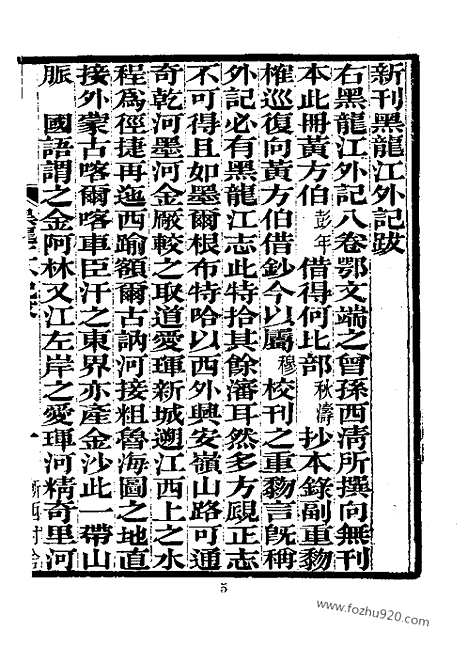 新刊黑龍江外記跋
右黑龍江外記八卷鄂文端之曾孫西清所撰向無刊
本此冊黃方伯彭年借得何比部秋濤抄本錄副重黝
榷巡復向黃方伯借鈔今以屬穆校刊之重黝言旣稱
外記必有黑龍江志此特拾其餘瀋耳然多方覛正志
不可得且如墨爾根布特哈以西外興安嶺山路可通
奇乾河墨河金厰較之取道愛琿新城遡江西上之水
程爲徑捷再迤西踰額爾古訥河接粗魯海圖之地直
接外蒙古喀爾喀車臣汗之東界亦産金沙此一帶山
脈 國語謂之金阿林又江左岸之愛琿河精奇里河
一
5
www.fozhu920.com